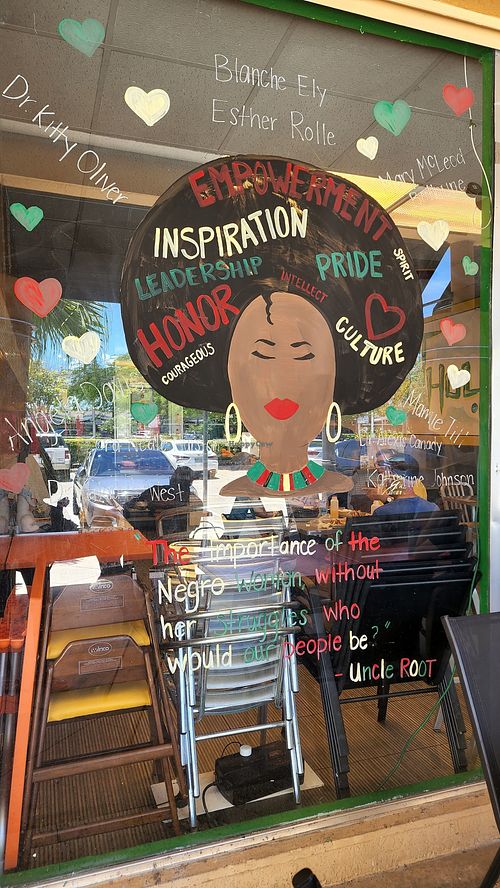 Blanche Ely
Esther Rolle
Dr. Kitty Oliver
Mary McLeod
Bethune
EMPOWERMENT
INSPIRATION
LEADERSHIP
PRIDE
SPIRIT
INTELLECT
HONOR
CULTURE
COURAGEOUS
Mamie Till
Canady
Katherine Johnson
West
The Importance of the
Negro woman, without
her struggles who
would our people be?"
- Uncle ROOT